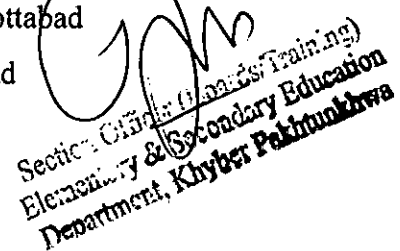 ottabad
d
Section Officer (Boards/Training)
Elementary & Secondary Education
Department, Khyber Pakhtunkhwa